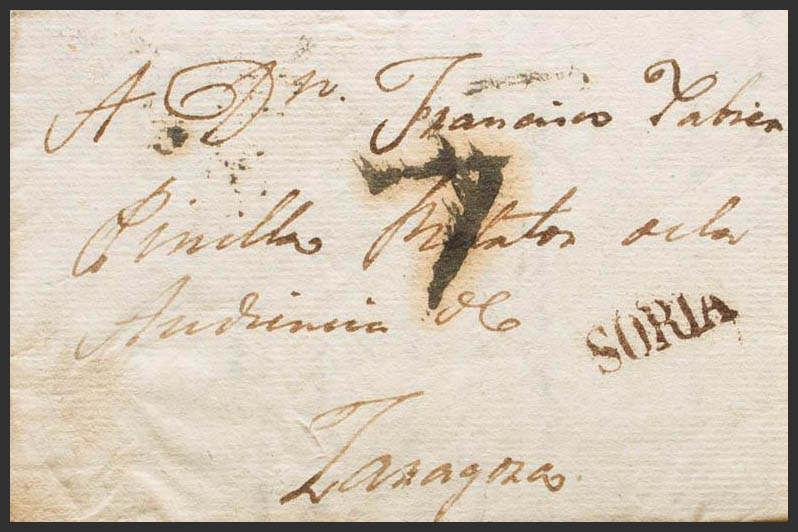 A Dn. Francisco Xabier
Pinilla Relator de la
Audiencia de
Zaragoza
7
SORIA